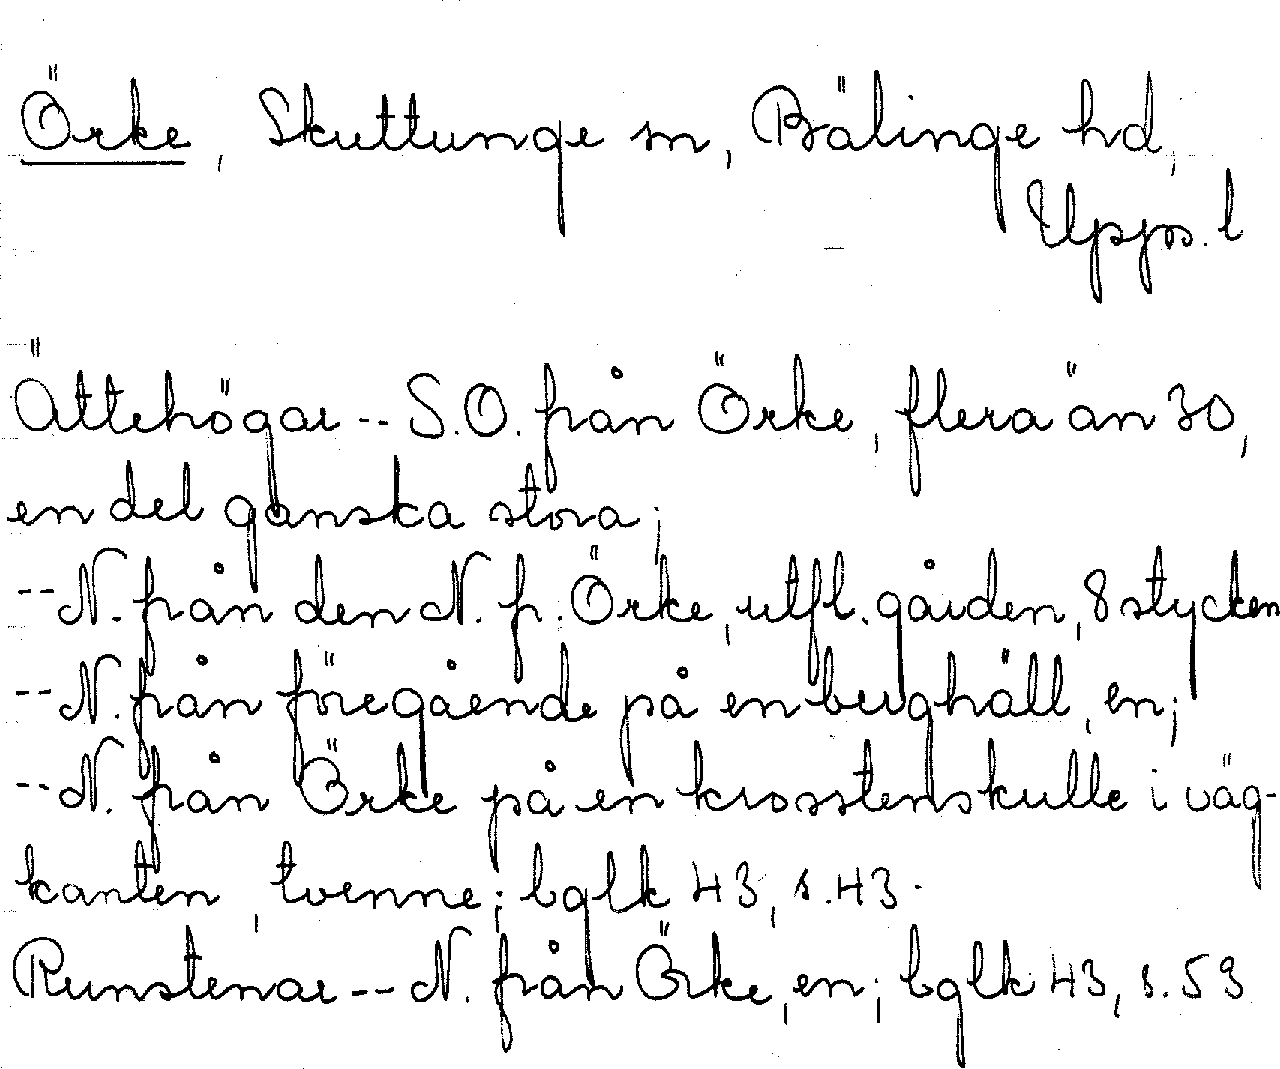 Örke, Skuttunge sn, Bälinge hd,
Upps. l
Ättehögar -- S.O. från Örke, flera än 30,
en del ganska stora;
-- N. från den N. fr. Örke, utfl. gården, 8 stycken
-- N. från föregående på en berghäll, en;
-- N. från Örke på en krosstenskulle i väg-
kanten, tvenne; bglk 43, s. 43.
Runstenar -- N. från Örke, en; bglk 43, s. 53